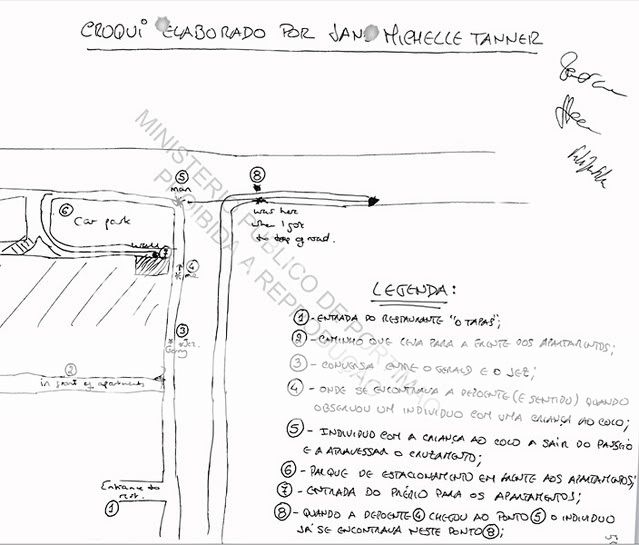 CROQUI ELABORADO POR JANE MICHELLE TANNER
MINISTÉRIO PÚBLICO DE PORTIMÃO
PROIBIDA A REPRODUÇÃO
⑤
man
⑧
was here
when I got
to top of road.
⑥
Car park
④
me
③
Gerry
Jez.
②
in front of apartments
Entrance to
rest.
①
LEGENDA:
① - ENTRADA DO RESTAURANTE "O TAPAS";
② - CAMINHO QUE LEVA PARA A FRENTE DOS APARTAMENTOS;
③ - CONVERSA ENTRE O GERALD E O JEZ;
④ - ONDE SE ENCONTRAVA A DEPOENTE (E SENTIDO) QUANDO
OBSERVOU UM INDIVIDUO COM UMA CRIANÇA AO COLO;
⑤ - INDIVIDUO COM A CRIANÇA AO COLO A SAIR DO PASSEIO
E A ATRAVESSAR O CRUZAMENTO;
⑥ - PARQUE DE ESTACIONAMENTO EM FRENTE AOS APARTAMENTOS;
⑦ - ENTRADA DO PRÉDIO PARA OS APARTAMENTOS;
⑧ - QUANDO A DEPOENTE ④ CHEGOU AO PONTO ⑤ O INDIVIDUO
JÁ SE ENCONTRAVA NESTE PONTO ⑧;